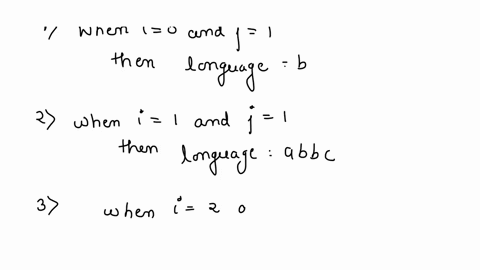 1) when i=0 and j=1
then language = b
2) when i=1 and j=1
then language : abbc
3) when i= 2 a